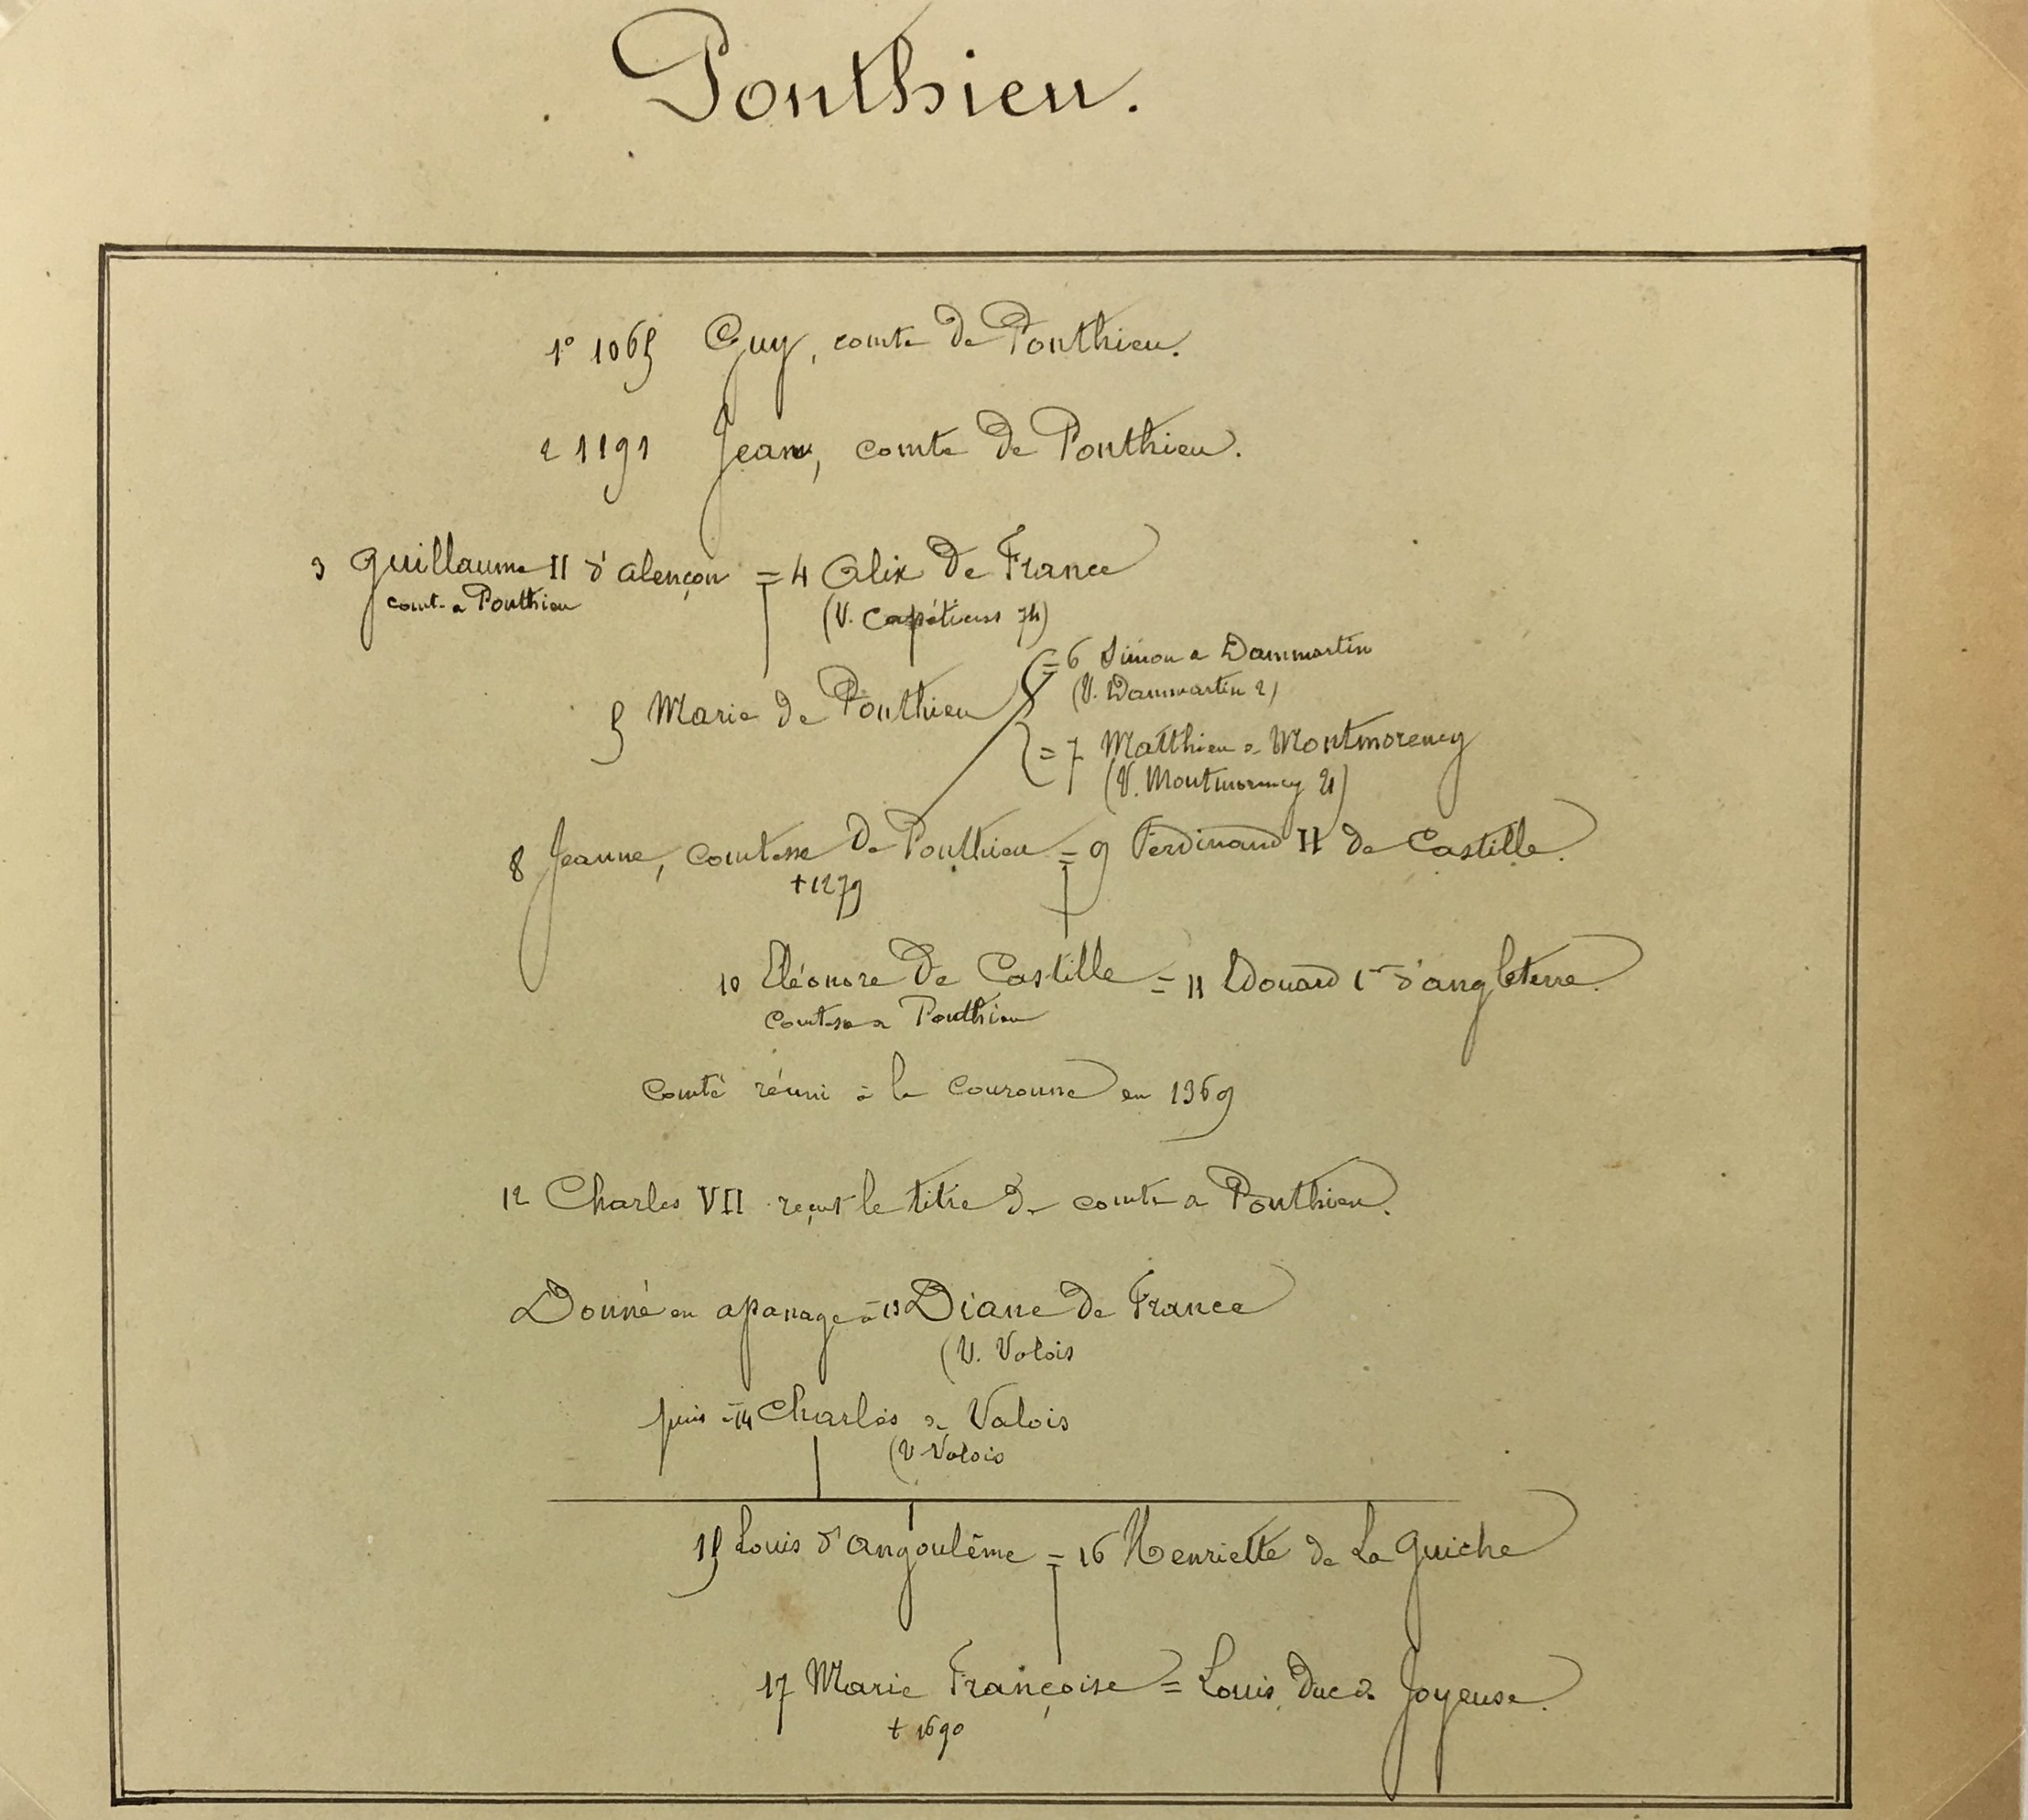 Ponthieu.
1° 1065 Guy, comte de Ponthieu.
2 1191 Jean, comte de Ponthieu.
3 Guillaume II d'alençon = 4 Alix de France
comte de Ponthieu (V. Capétiens 74)
= 6 Simon de Dammartin
(V. Dammartin 2)
5 Marie de Ponthieu
= 7 Matthieu de Montmorency
(V. Montmorency 21)
8 Jeanne, comtesse de Ponthieu = 9 Ferdinand II de Castille.
+ 1279
10 Eléonore de Castille = 11 Edouard 1er d'angleterre.
Comtesse de Ponthieu
Comté réuni à la couronne en 1369
12 Charles VII reçut le titre de comte de Ponthieu.
Donné en apanage à 13 Diane de France
(V. Valois
puis à 14 Charles de Valois
(V. Valois
15 Louis d'angoulême = 16 Henriette de La Guiche
17 Marie Françoise = Louis, Duc de Joyeuse.
+ 1690